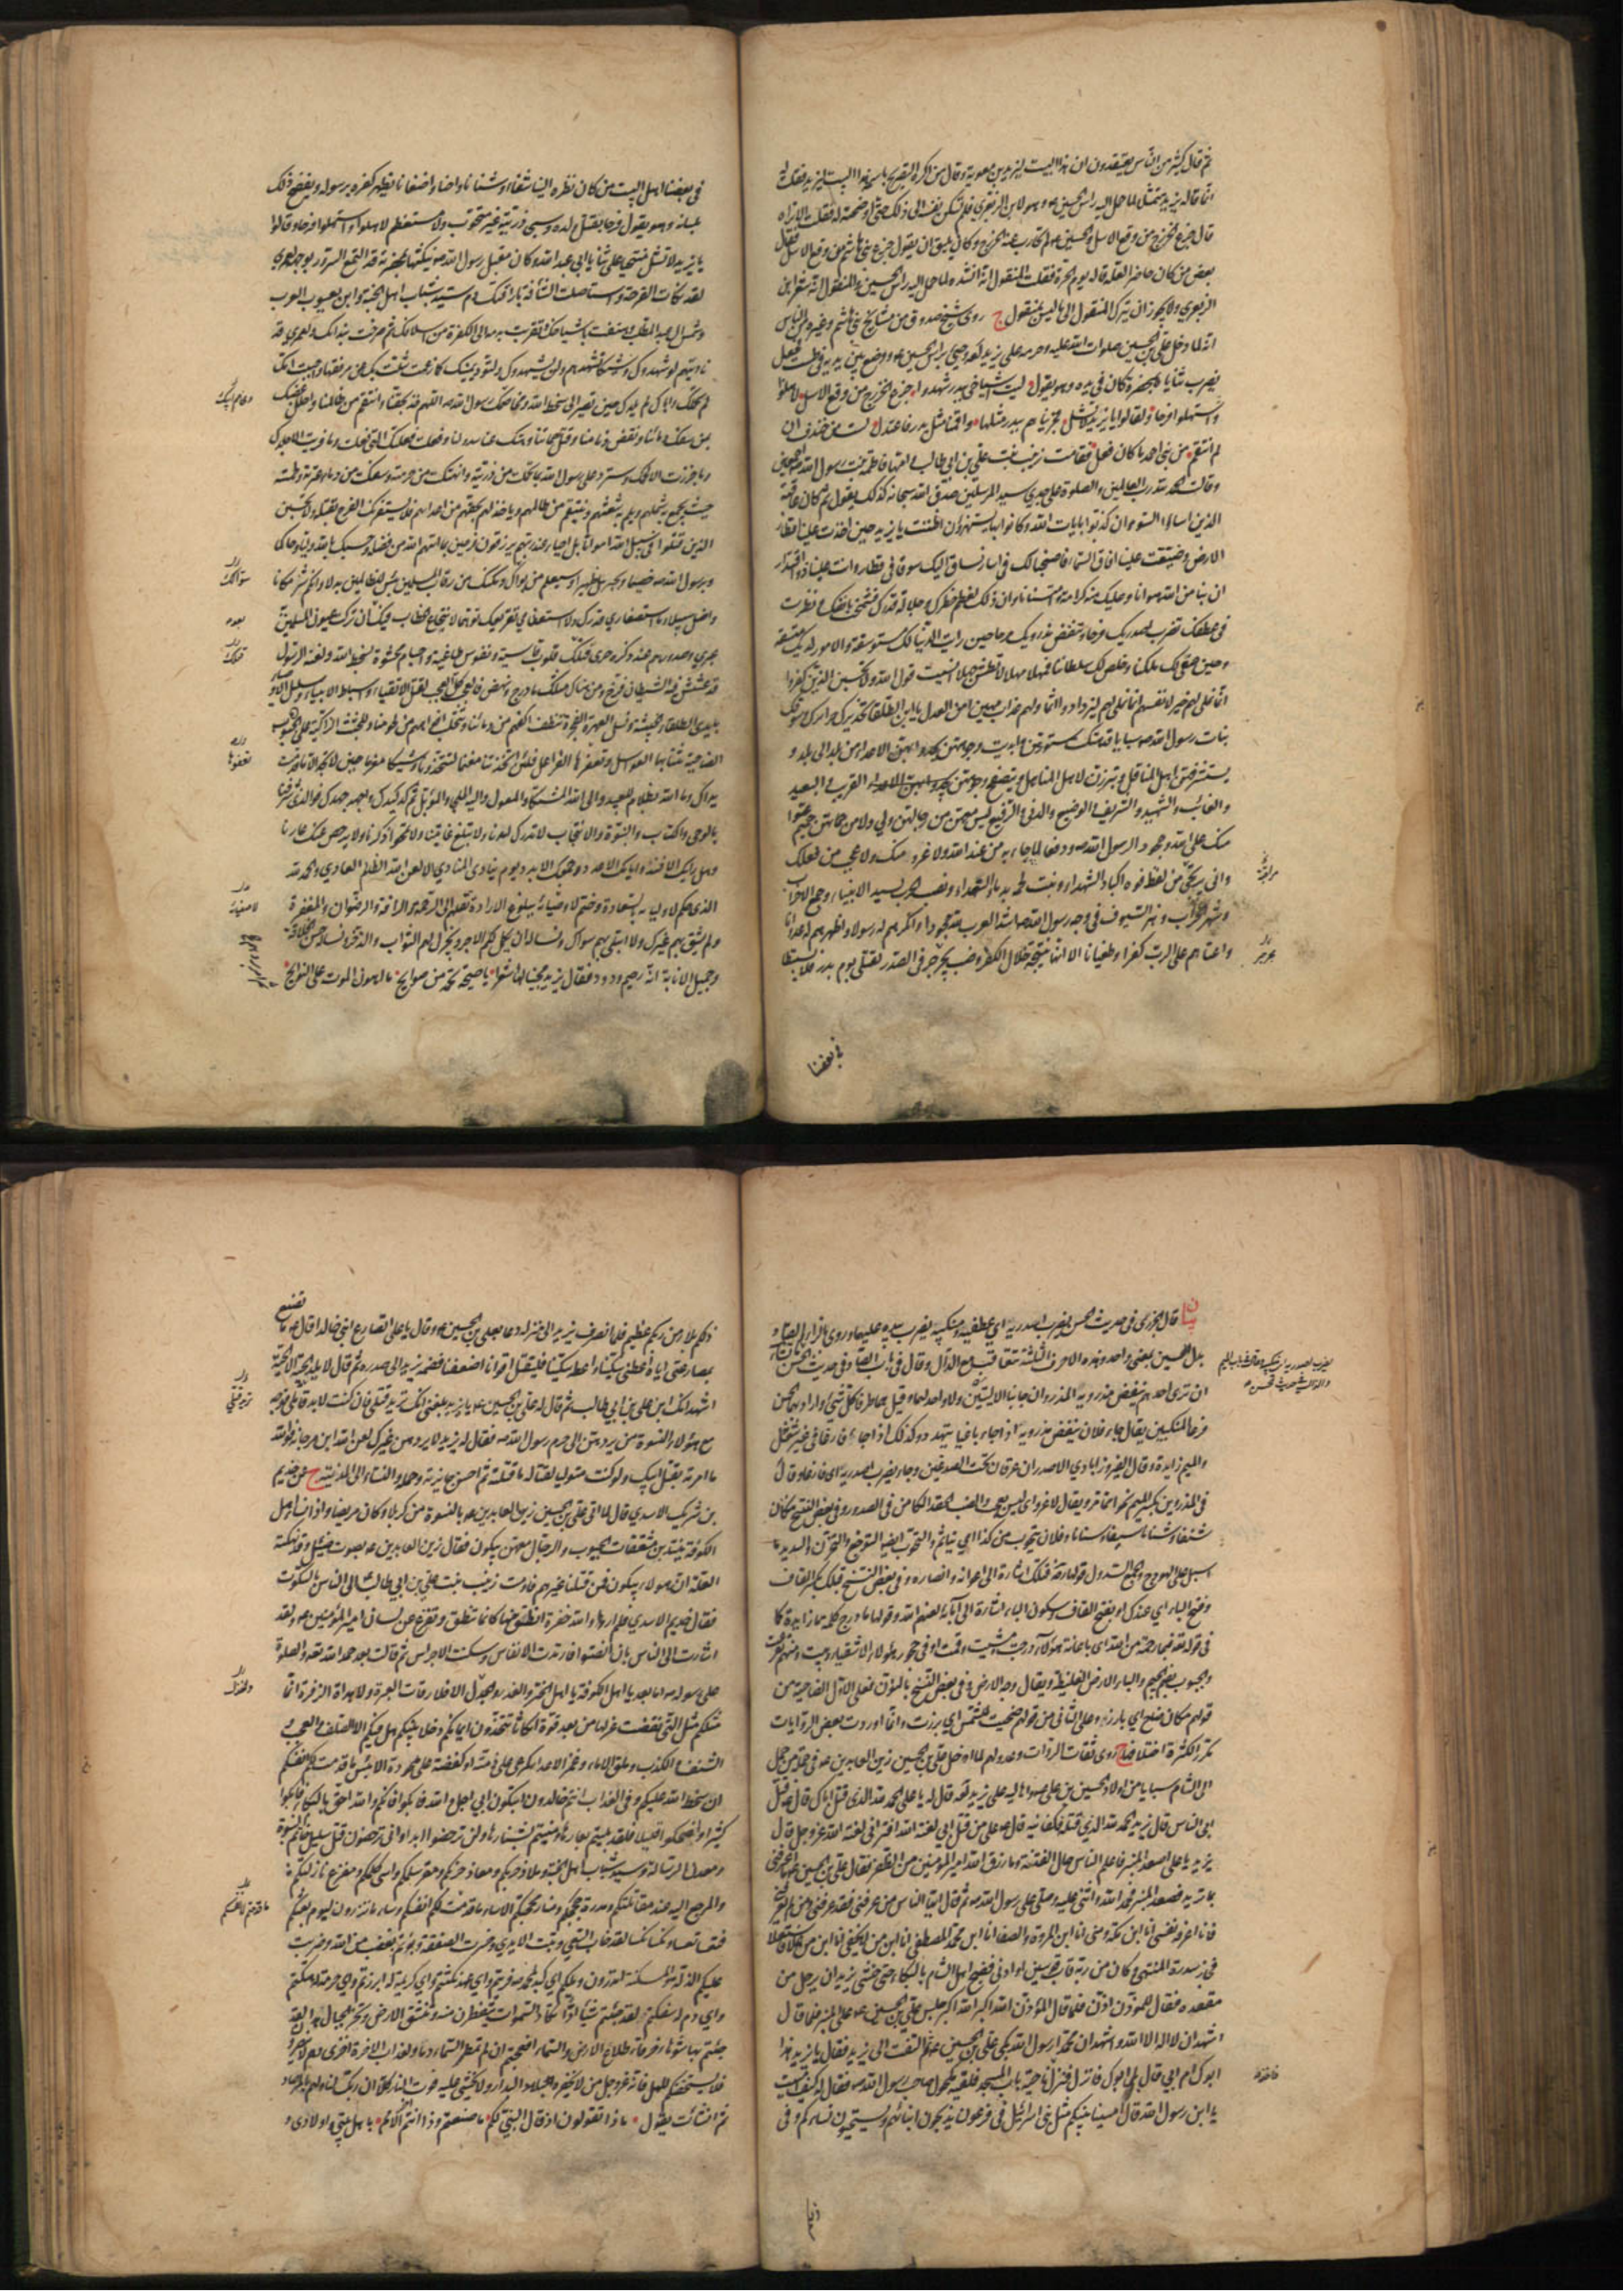 ثم قال كثير من الناس يعتقدون ان هذا البيت ليزيد بن معوية وقال من اكره التصريح باسمه هذا البيت ليزيد فقلت له
انما قاله يزيد متمثلا لما حمل اليه راس الحسين ع وهو لابن الزبعري فلم تسكن نفسه الى ذلك حتى اوضحته له فقلت الا تراه
قال جزع الخزرج من وقع الاسل والحسين ع لم تحارب عنه الخزرج وكان يليق ان يقول جزع بني هاشم من وقع الاسل فقال
بعض من كان حاضرا لعله قاله يوم الحرة فقلت المنقول انه انشده لما حمل اليه راس الحسين ع والمنقول انه شعر ابن
الزبعري ولا يجوز ان يترك المنقول الى ما ليس بمنقول ج روى شيخ صدوق من مشايخ بني هاشم وغيره من الناس
انه لما دخل علي بن الحسين صلوات الله عليه وحرمه على يزيد لعنه وجيء براس الحسين ع ووضع بين يديه في طست فجعل
يضرب ثناياه بمخصرة كانت في يده وهو يقول ليت اشياخي ببدر شهدوا جزع الخزرج من وقع الاسل لاهلوا
واستهلوا فرحا ولقالوا يا يزيد لا تشل فجزيناهم ببدر مثلها واقمنا مثل بدر فاعتدل لست من خندف ان
لم انتقم من بني احمد ما كان فعل فقامت زينب بنت علي بن ابي طالب وامها فاطمة بنت رسول الله ص
وقالت الحمد لله رب العالمين والصلوة على جدي سيد المرسلين صدق الله سبحانه كذلك يقول ثم كان عاقبة
الذين اساؤا السوء ان كذبوا بايات الله وكانوا بها يستهزؤن اظننت يا يزيد حين اخذت علينا اقطار
الارض وضيقت علينا افاق السماء فاصبحنا لك في اسار نساق اليك سوقا في قطار وانت علينا ذو اقتدار
ان بنا من الله هوانا وعليك منه كرامة وامتنانا وان ذلك لعظم خطرك وجلالة قدرك فشمخت بانفك ونظرت
في عطفك تضرب اصدريك فرحا وتنفض مذرويك مرحا حين رايت الدنيا لك مستوسقة والامور لديك متسقة
وحين صفى لك ملكنا وخلص لك سلطاننا فمهلا مهلا لا تطش جهلا انسيت قول الله ولا تحسبن الذين كفروا
انما نملي لهم خير لانفسهم انما نملي لهم ليزدادوا اثما ولهم عذاب مهين امن العدل يا ابن الطلقاء تخديرك حرائرك وسوقك
بنات رسول الله ص سبايا قد هتكت ستورهن وابديت وجوههن يحدو بهن الاعداء من بلد الى بلد و
يستشرفهن اهل المناقل ويبرزن لاهل المناهل ويتصفح وجوههن القريب والبعيد
والغائب والشهيد والشريف والوضيع والدني والرفيع ليس معهن من رجالهن ولي ولا من حماتهن حميم عتوا
منك على الله وجحودا لرسول الله ص ودفعا لما جاء به من عند الله ولا غرو منك ولا عجب من فعلك
وانى يرتجى ممن لفظ فوه اكباد الشهداء ونبت لحمه بدماء السعداء ونصب الحرب لسيد الانبياء وجمع الاحزاب
وشهر الحراب وهز السيوف في وجه رسول الله ص اشد العرب لله جحودا وانكرهم له رسولا واظهرهم له عدوانا
واعتاهم على الرب كفرا وطغيانا الا انها نتيجة خلال الكفر وضب يجرجر في الصدر لقتلى يوم بدر فلا يستبطا
في بغضنا
في بغضنا اهل البيت من كان نظره الينا شنفا وشنانا واحنا واضغانا يظهر كفره برسوله ويفصح ذلك
بلسانه وهو يقول فرحا بقتل ولده وسبي ذريته غير متحوب ولا مستعظم لاهلوا واستهلوا فرحا ولقالوا
يا يزيد لا تشل منتحيا على ثنايا ابي عبد الله وكان مقبل رسول الله ص ينكتها بمخصرته قد التمع السرور بوجهه لعمري
لقد نكات القرحة واستاصلت الشأفة باراقتك دم سيد شباب اهل الجنة وابن يعسوب العرب
وشمس ال عبد المطلب وهتفت باشياخك وتقربت بدمه الى الكفرة من اسلافك ثم صرخت بندائك ولعمري قد
ناديتهم لو شهدوك ووشيكا تشهدهم ولن يشهدوك ولتود يمينك كما زعمت شلت بك عن مرفقها واحببت امك
لم تحملك واباك لم يلدك حين تصير الى سخط الله ومخاصمك رسول الله ص اللهم خذ بحقنا وانتقم من ظالمنا واحلل غضبك
بمن سفك دمائنا ونقض ذمامنا وقتل حماتنا وهتك عنا سدولنا وفعلت فعلتك التي فعلت وما فريت الا جلدك
وما جززت الا لحمك وسترد على رسول الله بما تحملت من ذريته وانتهكت من حرمته وسفكت من دماء عترته ولحمته
حيث يجمع به شملهم ويلم به شعثهم وينتقم من ظالمهم وياخذ لهم بحقهم من اعدائهم فلا يستفزنك الفرح بقتله ولا تحسبن
الذين قتلوا في سبيل الله امواتا بل احياء عند ربهم يرزقون فرحين بما اتيهم الله من فضله وحسبك بالله وليا وحاكما
وبرسول الله ص خصيما وبجبرئيل ظهيرا وسيعلم من بواك ومكنك من رقاب المسلمين بئس للظالمين بدلا وانكم شر مكانا
واضل سبيلا وما استصغاري قدرك ولا استعظامي تقريعك توهما لانتجاع الخطاب فيك بعد ان تركت عيون المسلمين
عبرى وصدورهم عند ذكره حرى فتلك قلوب قاسية ونفوس طاغية واجسام محشوة بسخط الله ولعنة الرسول
قد عشش فيه الشيطان وفرخ ومن هناك مثلك ما درج ونهض فالعجب كل العجب لقتل الاتقياء واسباط الانبياء وسليل الاوصياء
بايدي الطلقاء الخبيثة ونسل العهرة الفجرة تنطف اكفهم من دمائنا وتتحلب افواههم من لحومنا وللجثث الزاكية على الجبوب
الضاحية تنتابها العواسل وتعفرها الفراعل فلئن اتخذتنا مغنما لتتخذن وشيكا مغرما حين لا تجد الا ما قدمت
يداك وما الله بظلام للعبيد والى الله المشتكى والمعول واليه الملجا والمؤمل ثم كد كيدك واجهد جهدك فوالذي شرفنا
بالوحي والكتاب والنبوة والانتجاب لا تدرك امدنا ولا تبلغ غايتنا ولا تمحو ذكرنا ولا يرحض عنك عارنا
وهل رايك الا فند وايامك الا عدد وجمعك الا بدد يوم ينادي المنادي الا لعن الله الظالم العادي والحمد لله
الذي حكم لاوليائه بالسعادة وختم لاصفيائه ببلوغ الارادة نقلهم الى الرحمة والرافة والرضوان والمغفرة
ولم يشق بهم غيرك ولا ابتلى بهم سواك ونساله ان يكمل لهم الاجر ويجزل لهم الثواب والذخر ونساله حسن الخلافة
وجميل الانابة انه رحيم ودود فقال يزيد مجيبا لها شعر يا صيحة تحمد من صوائح ما اهون الموت على النوائح
بيان قال الجزري في حديث الحسن يضرب اصدريه اي عطفيه ومنكبيه يضرب بيده عليهما وروي بالزاي والصاد
بدل السين بمعنى واحد وهذه الاحرف الثلثة تتعاقب مع الدال وقال في باب الصاد وفي حديث الحسن ما تشاء
ان ترى احدهم ينفض مذرويه المذروان جانبا الاليتين ولا واحد لهما وقيل هما طرفا كل شيء واراد بهما الحسن
فرعا المنكبين يقال جاء فلان ينفض مذرويه اذا جاء باغيا يتهدد وكذلك اذا جاء فارغا في غير شغل
والميم زايدة وقال الفيروزابادي الاصدران عرقان تحت الصدغين وجاء يضرب اصدريه اي فارغا وقال
في المذروين بكسر الميم نحو ما مر ويقال لا غرو اي ليس بعجب والضب الحقد الكامن في الصدر وفي بعض النسخ مكان
شنفا وشنانا سيفا وسنانا وفلان يتحوب من كذا اي يتأثم والتحوب ايضا التوجع والتحزن والسديل ما
اسبل على الهودج والجمع السدول قولها فتلك اشارة الى اعوانه وانصاره وفي بعض النسخ قبلك بكسر القاف
وفتح الباء اي عندك او بفتح القاف وسكون الباء اشارة الى آبائه لعنهم الله وقولها ما درج كلمة ما زايدة كما
في قوله تعالى فبما رحمة من الله
والجبوب بضم الجيم والباء الارض الغليظة ويقال وجه الارض وفي بعض النسخ بالنون فعلى الاول الضاحية من
قولهم مكان ضاح اي بارز وعلى الثاني من قولهم ضحيت للشمس اي برزت وانما اوردت بعض الروايات
مكررا لكثرة اختلافها ج روى ثقات الرواة وعدولهم لما ادخل علي بن الحسين زين العابدين ع في جملة من حمل
الى الشام سبايا من اولاد الحسين بن علي ص واهاليه على يزيد لعنه قال له يا علي الحمد لله الذي قتل اباك قال ع قتل
ابي الناس قال يزيد الحمد لله الذي قتله فكفانيه قال ع على من قتل ابي لعنة الله افتراني لعنت الله عز وجل قال
يزيد يا علي اصعد المنبر فاعلم الناس حال الفتنة وما رزق الله امير المؤمنين من الظفر فقال علي بن الحسين ع ما اعرفني
بما تريد فصعد المنبر فحمد الله واثنى عليه وصلى على رسول الله ص ثم قال ايها الناس من عرفني فقد عرفني ومن لم يعرفني
فانا اعرفه نفسي انا ابن مكة ومنى انا ابن المروة والصفا انا ابن محمد المصطفى انا ابن من لا يخفى انا ابن من علا فاستعلا
فجاز سدرة المنتهى وكان من ربه قاب قوسين او ادنى فضج اهل الشام بالبكاء حتى خشي يزيد ان يرحل من
مقعده فقال للمؤذن اذن فلما قال المؤذن الله اكبر الله اكبر جلس علي بن الحسين ع على المنبر فلما قال
اشهد ان لا اله الا الله واشهد ان محمدا رسول الله بكى علي بن الحسين ع ثم التفت الى يزيد فقال يا يزيد هذا
ابوك ام ابي قال بل ابوك فانزل فنزل ناحية باب المسجد فلقيه مكحول صاحب رسول الله ص فقال له كيف امسيت
يا ابن رسول الله قال امسينا بينكم مثل بني اسرائيل في ال فرعون يذبحون ابنائهم ويستحيون نسائهم وفي
ذلكم بلاء من ربكم عظيم فلما انصرف يزيد الى منزله دعا بعلي بن الحسين ع وقال يا علي اتصارع ابني خالدا قال ع ما تصنع
بمصارعتي اياه اعطني سكينا واعطه سكينا فليقتل اقوانا اضعفنا فضمه يزيد الى صدره ثم قال لا يلد الحية الا الحية
اشهد انك ابن علي بن ابي طالب ثم قال له علي بن الحسين ع يا يزيد بلغني انك تريد قتلي فان كنت لا بد قاتلي فوجه
مع هؤلاء النسوة من يردهن الى حرم رسول الله ص فقال له يزيد لا يردهن غيرك لعن الله ابن مرجانة فوالله
ما امرته بقتل ابيك ولو كنت متوليا لقتاله ما قتلته ثم احسن جائزته وحمله والنساء الى المدينة ج عن حذيم
بن شريك الاسدي قال لما اتى علي بن الحسين زين العابدين ع بالنسوة من كربلا وكان مريضا واذا نساء اهل
الكوفة ينتدبن مشققات الجيوب والرجال معهن يبكون فقال زين العابدين ع بصوت ضئيل وقد نهكته
العلة ان هؤلاء يبكون فمن قتلنا غيرهم فاومت زينب بنت علي بن ابي طالب ع الى الناس بالسكوت
فقال حذيم الاسدي فلم ار والله خفرة انطق منها كانما تنطق وتفرغ عن لسان امير المؤمنين ع وقد
اشارت الى الناس بان انصتوا فارتدت الانفاس وسكنت الاجراس ثم قالت بعد حمد الله تعالى والصلوة
على رسوله ص اما بعد يا اهل الكوفة يا اهل الختر والغدر والحدل الا فلا رقات العبرة ولا هدات الزفرة انما
مثلكم مثل التي نقضت غزلها من بعد قوة انكاثا تتخذون ايمانكم دخلا بينكم هل فيكم الا الصلف والعجب
والشنف والكذب وملق الاماء وغمز الاعداء كمرعى على دمنة او كفضة على ملحودة الا بئس ما قدمت لكم انفسكم
ان سخط الله عليكم وفي العذاب انتم خالدون اتبكون اخي اجل والله فابكوا فانكم والله احق بالبكاء فابكوا
كثيرا واضحكوا قليلا فلقد بليتم بعارها ومنيتم بشنارها ولن ترحضوها ابدا وانى ترحضون قتل سليل خاتم النبوة
ومعدن الرسالة وسيد شباب اهل الجنة وملاذ حربكم ومعاذ حزبكم ومقر سلمكم واسى كلمكم ومفزع نازلتكم
والمرجع اليه عند مقاتلتكم ومدرة حججكم ومنار محجتكم الا ساء ما قدمت لكم انفسكم وساء ما تزرون ليوم بعثكم
فتعسا تعسا ونكسا نكسا لقد خاب السعي وتبت الايدي وخسرت الصفقة وبؤتم بغضب من الله وضربت
عليكم الذلة والمسكنة اتدرون ويلكم اي كبد لمحمد ص فريتم واي عهد نكثتم واي كريمة له ابرزتم واي حرمة له هتكتم
واي دم له سفكتم لقد جئتم شيئا ادا تكاد السموات يتفطرن منه وتنشق الارض وتخر الجبال هدا لقد
جئتم بها شوهاء خرقاء طلاع الارض والسماء افعجبتم ان لم تمطر السماء دما ولعذاب الاخرة اخزى وهم لا ينصرون
فلا يستخفنكم المهل فانه عز وجل من لا يحفزه البدار ولا يخشى عليه فوت الثار كلا ان ربك لنا ولهم لبالمرصاد
ثم انشات تقول ماذا تقولون اذ قال النبي لكم ماذا صنعتم وانتم اخر الامم باهل بيتي واولادي و